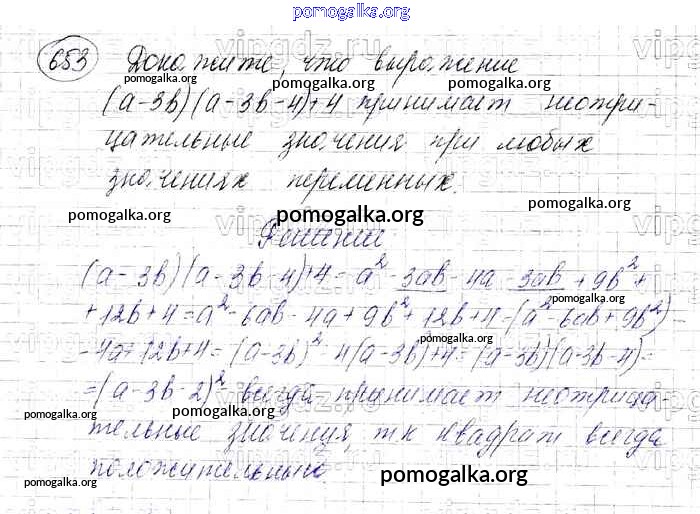 pomogalka.org
653 Докажите, что выражение
pomogalka.org pomogalka.org
(a-3b)(a-3b-4)+4 принимает неотри-
цательные значения при любых
значениях переменных.
pomogalka.org pomogalka.org pomogalka.org
Решение
(a-3b)(a-3b-4)+4 = a² - 3ab - 4a - 3ab + 9b² +
pomogalka.org pomogalka.org
+12b+4 = a² - 6ab - 4a + 9b² + 12b + 4 = (a² - 6ab + 9b²) -
pomogalka.org pomogalka.org
- 4a + 12b + 4 = (a-3b)² - 4(a-3b) + 4 = (a-3b)(a-3b-4) =
= (a-3b-2)² всегда принимает неотрица-
pomogalka.org pomogalka.org pomogalka.org
тельные значения, т.к квадрат всегда
положительный.
pomogalka.org pomogalka.org